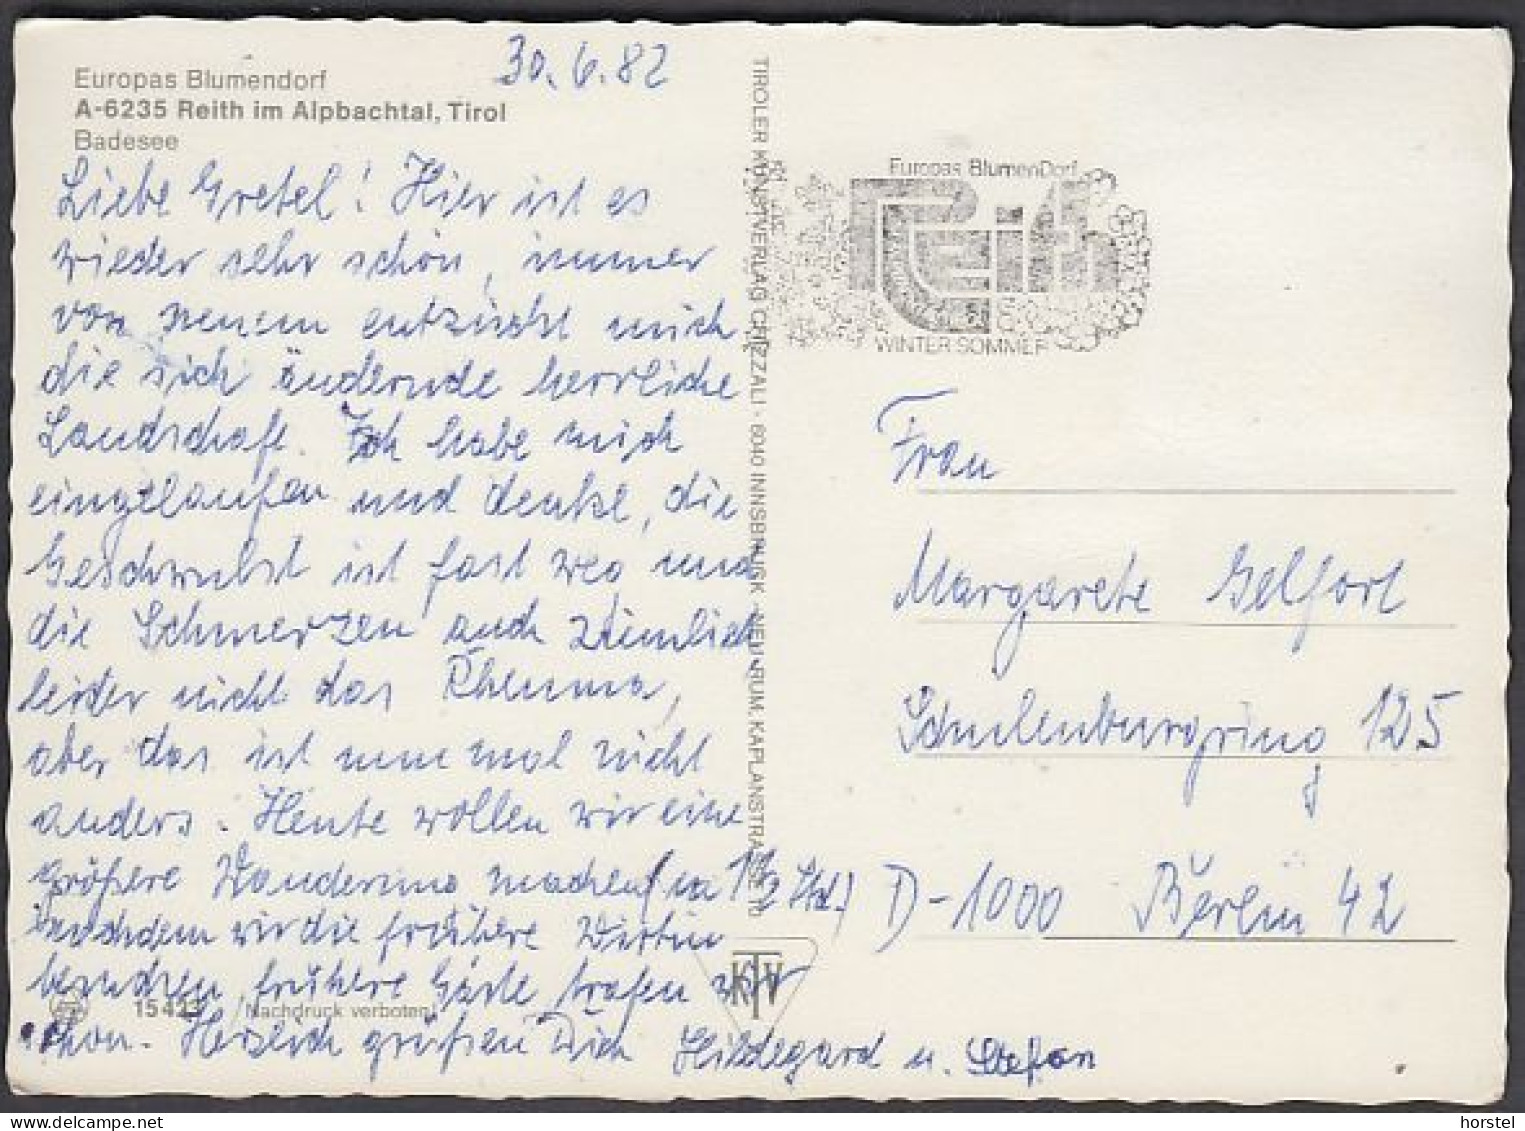 30.6.82
Europas Blumendorf
A-6235 Reith im Alpbachtal, Tirol
Badesee
Liebe Gretel! Hier ist es
wieder sehr schön, immer
von neuem entzückt mich
die sich ändernde herrliche
Landschaft. Ich habe mich
eingelaufen und denke, die
Geschwulst ist fast weg und
die Schmerzen auch ziemlich
leider nicht das Rheuma,
aber das ist nun mal nicht
anders. Heute wollen wir eine
größere Wanderung machen (ca 1 1/2 Std.)
nachdem wir die frühere Wirtin
besuchen, frühere Gäste trafen wir
schon. Herzlich grüßen Dich Hildegard u. Stefan
15423 Nachdruck verboten!
TIROLER KUNSTVERLAG CHIZZALI · 6040 INNSBRUCK-NEU-RUM, KAPLANSTRASSE 10
KTV
Europas BlumenDorf
Reith
WINTER SOMMER
Frau
Margarete Gelfort
Schulenburgring 125
D-1000 Berlin 42
www.delcampe.net
horstel